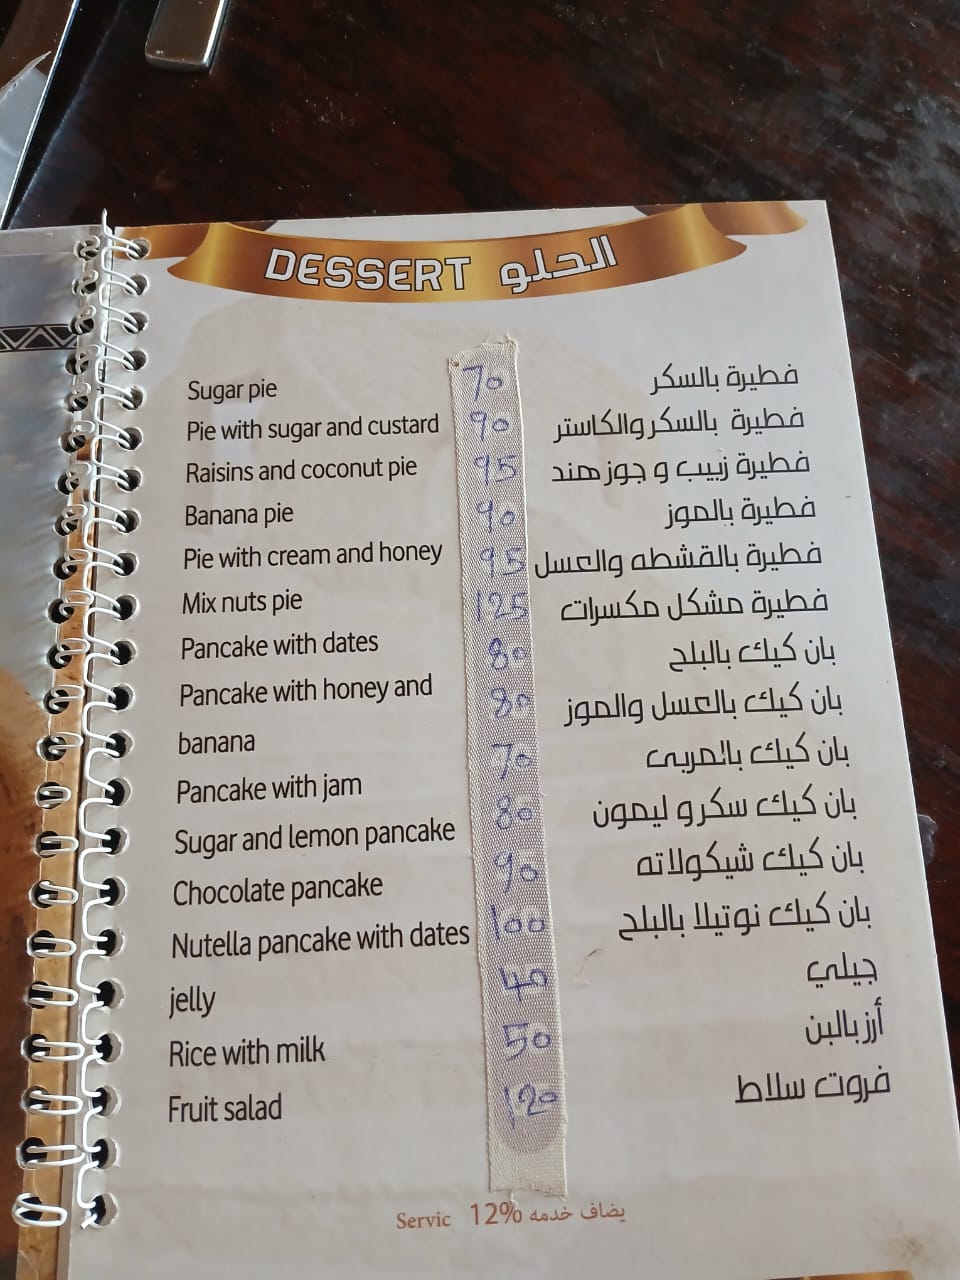 DESSERT الحلو
Sugar pie 70 فطيرة بالسكر
Pie with sugar and custard 90 فطيرة بالسكر والكاستر
Raisins and coconut pie 95 فطيرة زبيب و جوز هند
Banana pie 90 فطيرة بالموز
Pie with cream and honey 95 فطيرة بالقشطه والعسل
Mix nuts pie 125 فطيرة مشكل مكسرات
Pancake with dates 80 بان كيك بالبلح
Pancake with honey and 80 بان كيك بالعسل والموز
banana 70 بان كيك بالمربى
Pancake with jam 80 بان كيك سكر و ليمون
Sugar and lemon pancake 90 بان كيك شيكولاته
Chocolate pancake 100 بان كيك نوتيلا بالبلح
Nutella pancake with dates 40 جيلي
jelly 50 أرز بالبن
Rice with milk 120 فروت سلاط
Fruit salad
Servic 12% يضاف خدمه